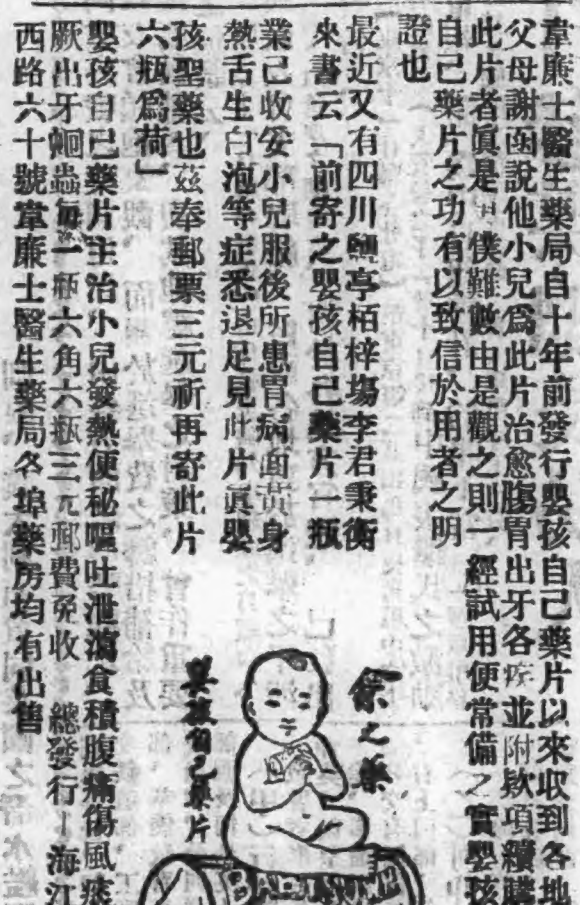 韋廉士醫生藥局自十年前發行嬰孩自己藥片以來收到各地
父母謝函說他小兒爲此片治愈腸胃出牙各疾並附欵項續購
此片者眞是 僕難數由是觀之則一經試用便常備之實嬰孩
自己藥片之功有以致信於用者之明
證也
最近又有四川鹽亭栢梓塲李君秉衡
來書云「前寄之嬰孩自己藥片一瓶
業已收妥小兒服後所患胃病面黃身
熱舌生白泡等症悉退足見此片眞嬰
孩聖藥也茲奉郵票三元祈再寄此片
六瓶爲荷」
余之藥
嬰孩自己藥片
嬰孩自己藥片主治小兒發熱便秘嘔吐泄瀉食積腹痛傷風痰
厥出牙蛔蟲每一瓶六角六瓶三元郵費免收 總發行 海江
西路六十號韋廉士醫生藥局各埠藥房均有出售